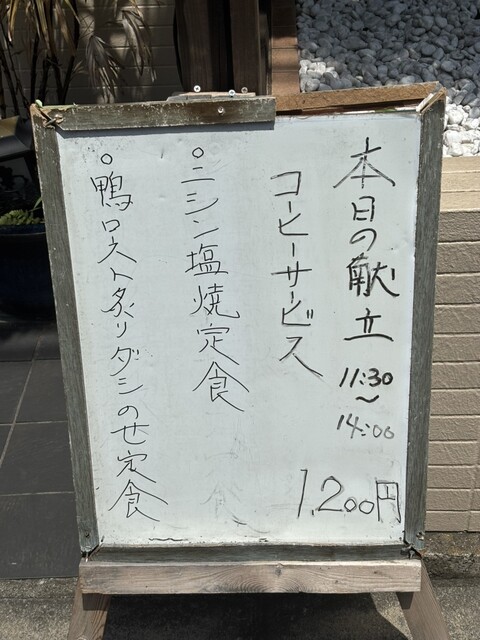 本日の献立 11:30〜14:00
コーヒーサービス
1,200円
○ニシン塩焼定食
○鴨ロスト炙リダシのせ定食